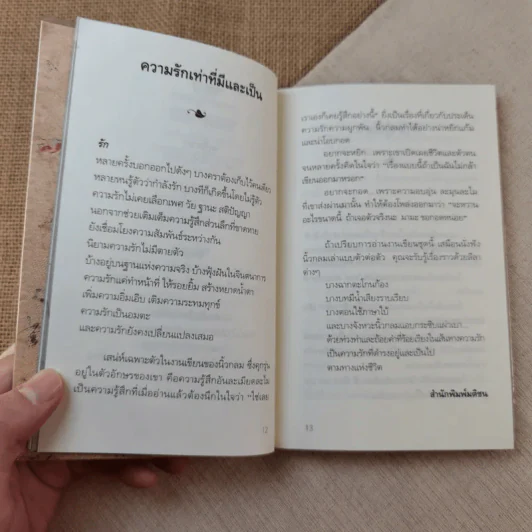 ความรักเท่าที่มีและเป็น
รัก
หลายครั้งบอกออกไปดังๆ บางคราต้องเก็บไว้คนเดียว
หลายหนรู้ตัวว่ากำลังรัก บางทีก็เกิดขึ้นโดยไม่รู้ตัว
ความรักไม่เคยเลือกเพศ วัย ฐานะ สติปัญญา
นอกจากช่วยเติมเต็มความรู้สึกส่วนลึกที่ขาดหาย
ยังเชื่อมโยงความสัมพันธ์ระหว่างกัน
นิยามความรักไม่มีตายตัว
บ้างอยู่บนฐานแห่งความจริง บ้างฟุ้งฝันในจินตนาการ
ความรักแต่ทำหน้าที่ ให้รอยยิ้ม สร้างหยาดน้ำตา
เพิ่มความอิ่มเอิบ เติมความระทมทุกข์
ความรักเป็นอมตะ
และความรักยังคงเปลี่ยนแปลงเสมอ
เสน่ห์เฉพาะตัวในงานเขียนของนิ้วกลม ซึ่งคุกรุ่น
อยู่ในตัวอักษรของเขา คือความรู้สึกอันละเมียดละไม
เป็นความรู้สึกที่เมื่ออ่านแล้วต้องนึกในใจว่า "ใช่เลย
12
เราเองก็เคยรู้สึกอย่างนี้" ยิ่งเป็นเรื่องที่เกี่ยวกับประเด็น
ความรักความผูกพัน นิ้วกลมทำได้อย่างน่าหยิกแก้ม
และน่าโอบกอด
อยากจะหยิก เพราะเขาเปิดเผยชีวิตและตัวตน
จนหลายครั้งคิดในใจว่า "เรื่องแบบนี้ถ้าเป็นฉันไม่กล้า
เขียนออกมาหรอก"
อยากจะกอด... เพราะความอบอุ่น ละมุนละไม
ที่เขาส่งผ่านมานั้น ทำให้ต้องโพล่งออกมาว่า "จะหวาน
อะไรขนาดนี้ ถ้าเจอตัวจริงนะ มามะ ขอกอดหน่อย"
ถ้าเปรียบการอ่านงานเขียนชุดนี้ เสมือนนั่งฟัง
นิ้วกลมเล่าแบบตัวต่อตัว คุณจะรับรู้เรื่องราวด้วยลีลา
ต่างๆ
บางฉากตะโกนก้อง
บางบทมีน้ำเสียงราบเรียบ
บางตอนใช้ภาษาใบ้
และบางจังหวะนิ้วกลมแอบกระซิบแผ่วเบา...
ด้วยท่วงท่าและถ้อยคำที่ร้อยเรียงในเส้นทางความรัก
เป็นความรักที่ดำรงอยู่และเป็นไป
ตามทางแห่งชีวิต
สำนักพิมพ์มติชน
13